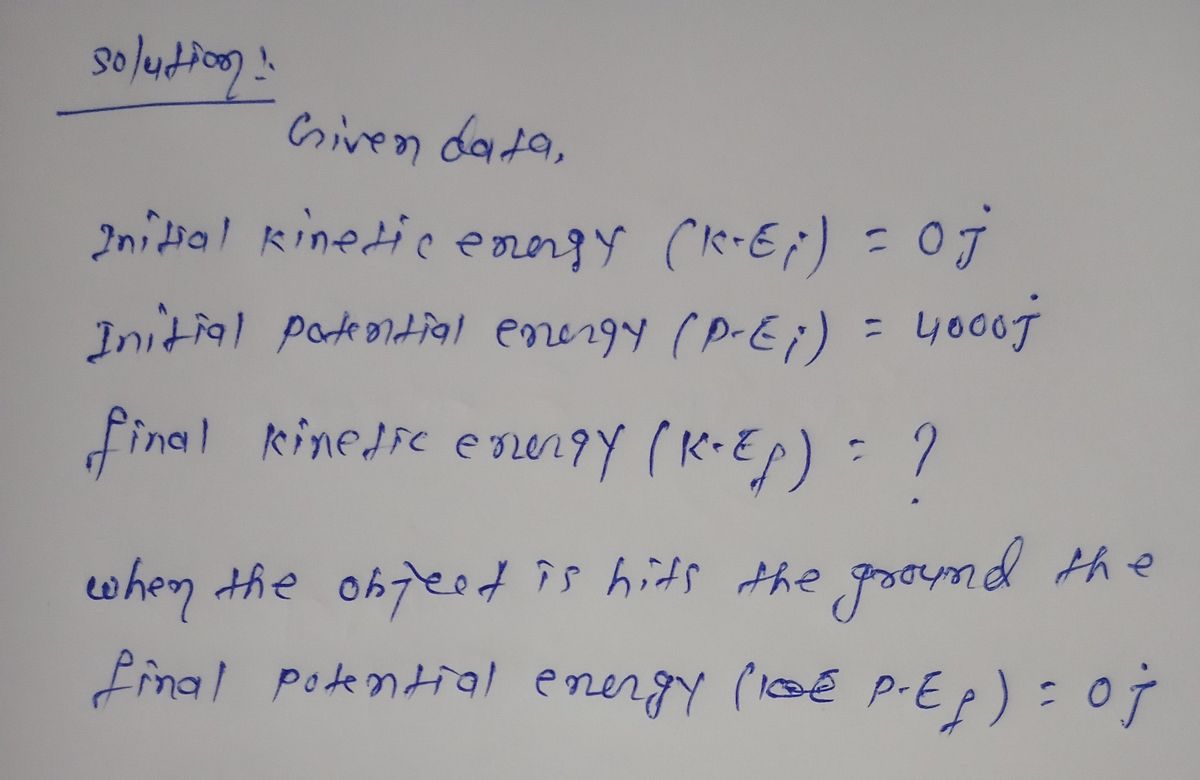 solution:
Given data,
Initial kinetic energy (K·Ei) = 0j
Initial potential energy (P·Ei) = 4000j
final kinetic energy (K·Ef) = ?
when the object is hits the ground the
final potential energy (P·Ef) = 0j